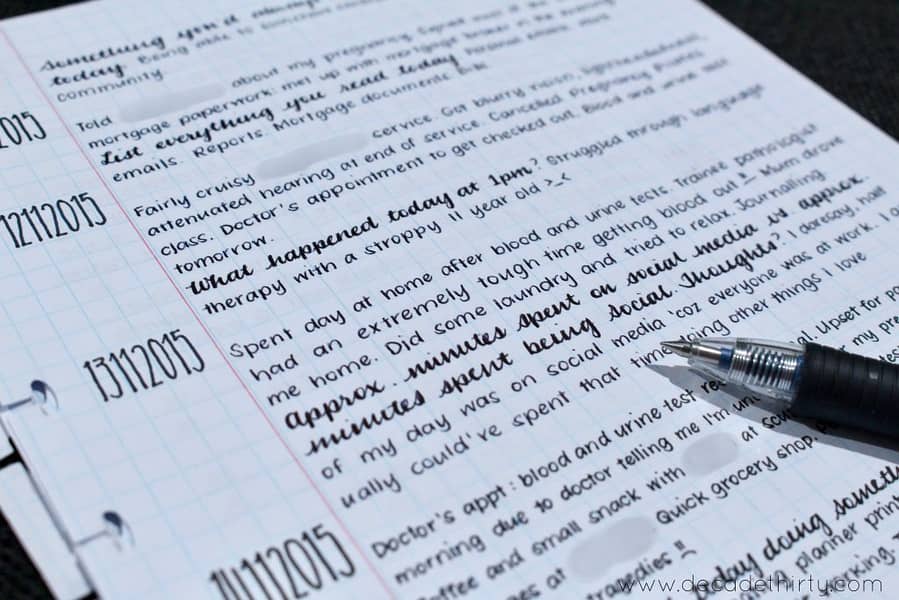 something you'd always
today. Being able to
community
2015
Told about my pregnancy.
mortgage paperwork: met up with mortgage broker in the evening
List everything you read today. Personal emails, work
emails. Reports. Mortgage documents
12112015
Fairly cruisy service. Got blurry vision, lightheadedness,
attenuated hearing at end of service. Cancelled Pregnancy Pilates
class. Doctor's appointment to get checked out. Blood and urine test
tomorrow.
What happened today at 1pm? Struggled through language
therapy with a stroppy 11 year old >_<
13112015
Spent day at home after blood and urine tests. Trainee pathologist
had an extremely tough time getting blood out !! Mum drove
me home. Did some laundry and tried to relax. Journalling
Approx. minutes spent on social media vs approx.
minutes spent being social. Thoughts? I daresay, half
of my day was on social media 'coz everyone was at work. I
ually could've spent that time doing other things I love
14112015
Doctor's appt: blood and urine test Upset for
morning due to doctor telling me I'm my
coffee and small snack with at
at Quick grocery shop.
today doing
planner
www.decadethirty.com